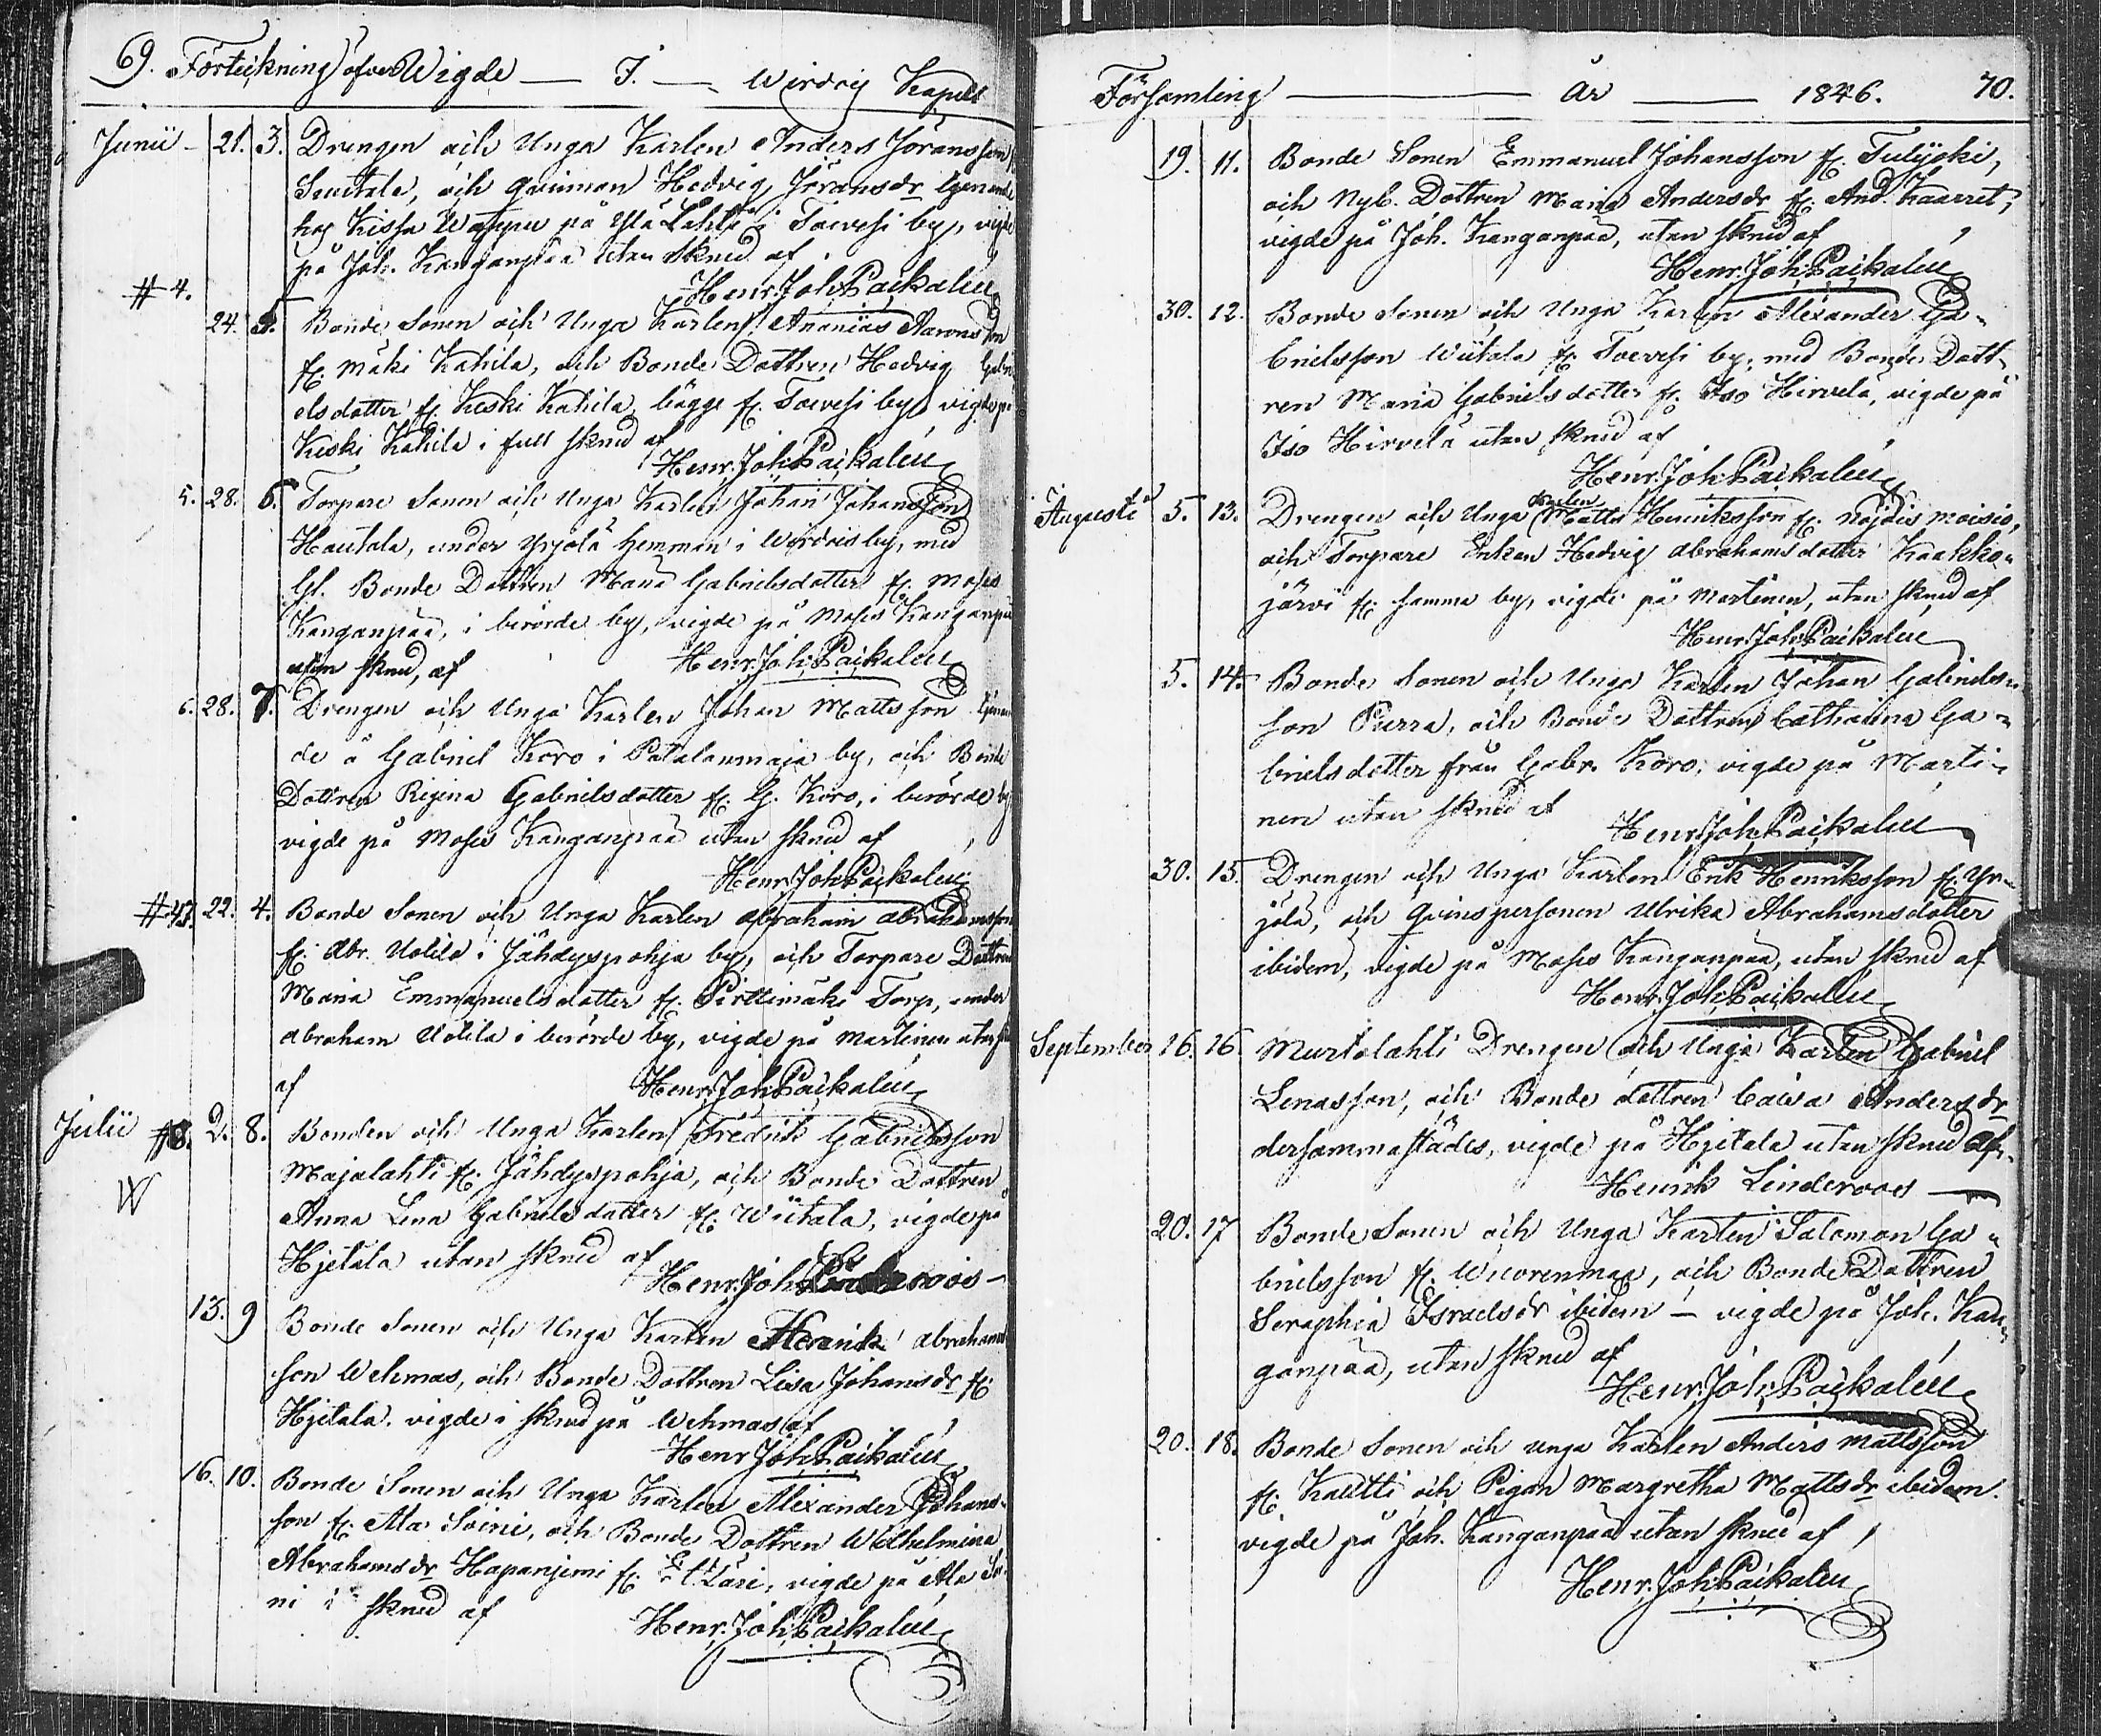 69. Förteckning öfver Wigde — I. — Wirdois Kapell
Junii - 21. 3. Drengen och Unga Karlen Anders Jöransson
Seutala, och qvinnan Hedvig Jöransdr tjenande
hos Kissa Wappu på Ylä Lahti i Toevesi by, vigde
på Joh. Kanganpää utan skrud af
Henr. Joh. Paikalén
# 4.
24. 5. Bonde Sonen och Unga Karlen Ananias Aaronsson
fr. Mäki Kahila, och Bonde Dottren Hedvig Gabri
elsdotter fr. Keski Kahila, bägge fr. Toevesi by, vigde på
Keski Kahila i full skrud af
Henr. Joh. Paikalén
5. 28. 6. Torpare Sonen och Unga Karlen Johan Johansson
Hautala, under Yrjölä hemman i Wirdois by, med
Gl. Bonde Dottren Maria Gabrielsdotter fr. Moses
Kanganpää, i berörde by, vigde på Moses Kanganpää
utan skrud, af
Henr. Joh. Paikalén
6. 28. 7. Drengen och Unga Karlen Johan Mattsson tjenan
de å Gabriel Koro i Patalanmaja by, och Bonde
Dottren Regina Gabrielsdotter fr. G. Koro, i berörde by
vigde på Moses Kanganpää utan skrud af
Henr. Joh. Paikalén
22. 4. Bonde Sonen och Unga Karlen Abraham Abrahamsson
fr. Abr. Uotila i Jähdyspohja by, och Torpare Dottren
Maria Emmanuelsdotter fr. Pirttimäki Torp, under
Abraham Uotila i berörde by, vigde på Martinen utan skrud
af
Henr. Joh. Paikalén
Julii #8. 2. 8. Bonden och Unga Karlen Fredrik Gabrielsson
Majalahti fr. Jähdyspohja, och Bonde Dottren
W
Anna Lena Gabrielsdotter fr. Wiitala, vigde på
Hjetala utan skrud af
Henr. Joh. Linderoos -
13. 9 Bonde Sonen och Unga Karlen Henrik Abrahams
son Wehmas, och Bonde Dottren Lisa Johansdr fr.
Hjetala. vigde i skrud på Wehmas af
Henr Joh. Paikalén
16. 10. Bonde Sonen och Unga Karlen Alexander Johans-
son fr. Ala Soini, och Bonde Dottren Wilhelmina
Abrahamsdr Hapanjemi fr. Etzäri, vigde på Ala Soi-
ni i skrud af
Henr. Joh. Paikalén
Församling — År — 1846. 70.
19. 11. Bonde Sonen Emmanuel Johansson fr. Tulijoki,
och Nyb. Dottren Maria Andersdr fr. And. Kaarret,
vigde på Joh. Kanganpää, utan skrud af
Henr. Joh. Paikalén
30. 12. Bonde Sonen och Unga Karlen Alexander Ga-
brielsson Wiitala fr. Toevesi by, med Bonde Dott-
ren Maria Gabrielsdotter fr. Iso Hirvelä, vigde på
Iso Hirvelä utan skrud af
Henr. Joh. Paikalén
Augusti 5. 13. Drengen och Unga Karlen Matts Henriksson fr. Nojdis moisio,
och Torpare Enkan Hedvig Abrahamsdotter Kaakko-
järvi fr. samma by, vigde på Martinen, utan skrud af
Henr. Joh. Paikalén
5. 14. Bonde Sonen och Unga Karlen Johan Gabriels-
son Purra, och Bonde Dottren Catharina Ga-
brielsdotter från Gabr. Koro, vigde på Marti-
nen utan skrud af
Henr. Joh. Paikalén
30. 15. Drengen och Unga Karlen Erik Henriksson fr. Yr-
jölä, och Qvinspersonen Ulrika Abrahamsdotter
ibidem, vigde på Moses Kanganpää, utan skrud af
Henr. Joh. Paikalén
September 16. 16. Murtolahti Drengen och Unga Karlen Gabriel
Lenasson, och Bonde dottren Caisa Andersdr
dersammastädes, vigde på Hjetala utan skrud af
Henrik Linderoos —
20. 17 Bonde Sonen och Unga Karlen Salomon Ga-
brielsson fr. Wuorenmaa, och Bonde Dottren
Seraphia Israelsdr ibidem — vigde på Joh. Kan-
ganpää, utan skrud af
Henr. Joh. Paikalén
20. 18. Bonde Sonen och unga Karlen Anders Mattsson
fr. Kautti och Pigan Margretha Mattsdr ibidem.
vigde på Joh. Kanganpää utan skrud af
Henr. Joh. Paikalén